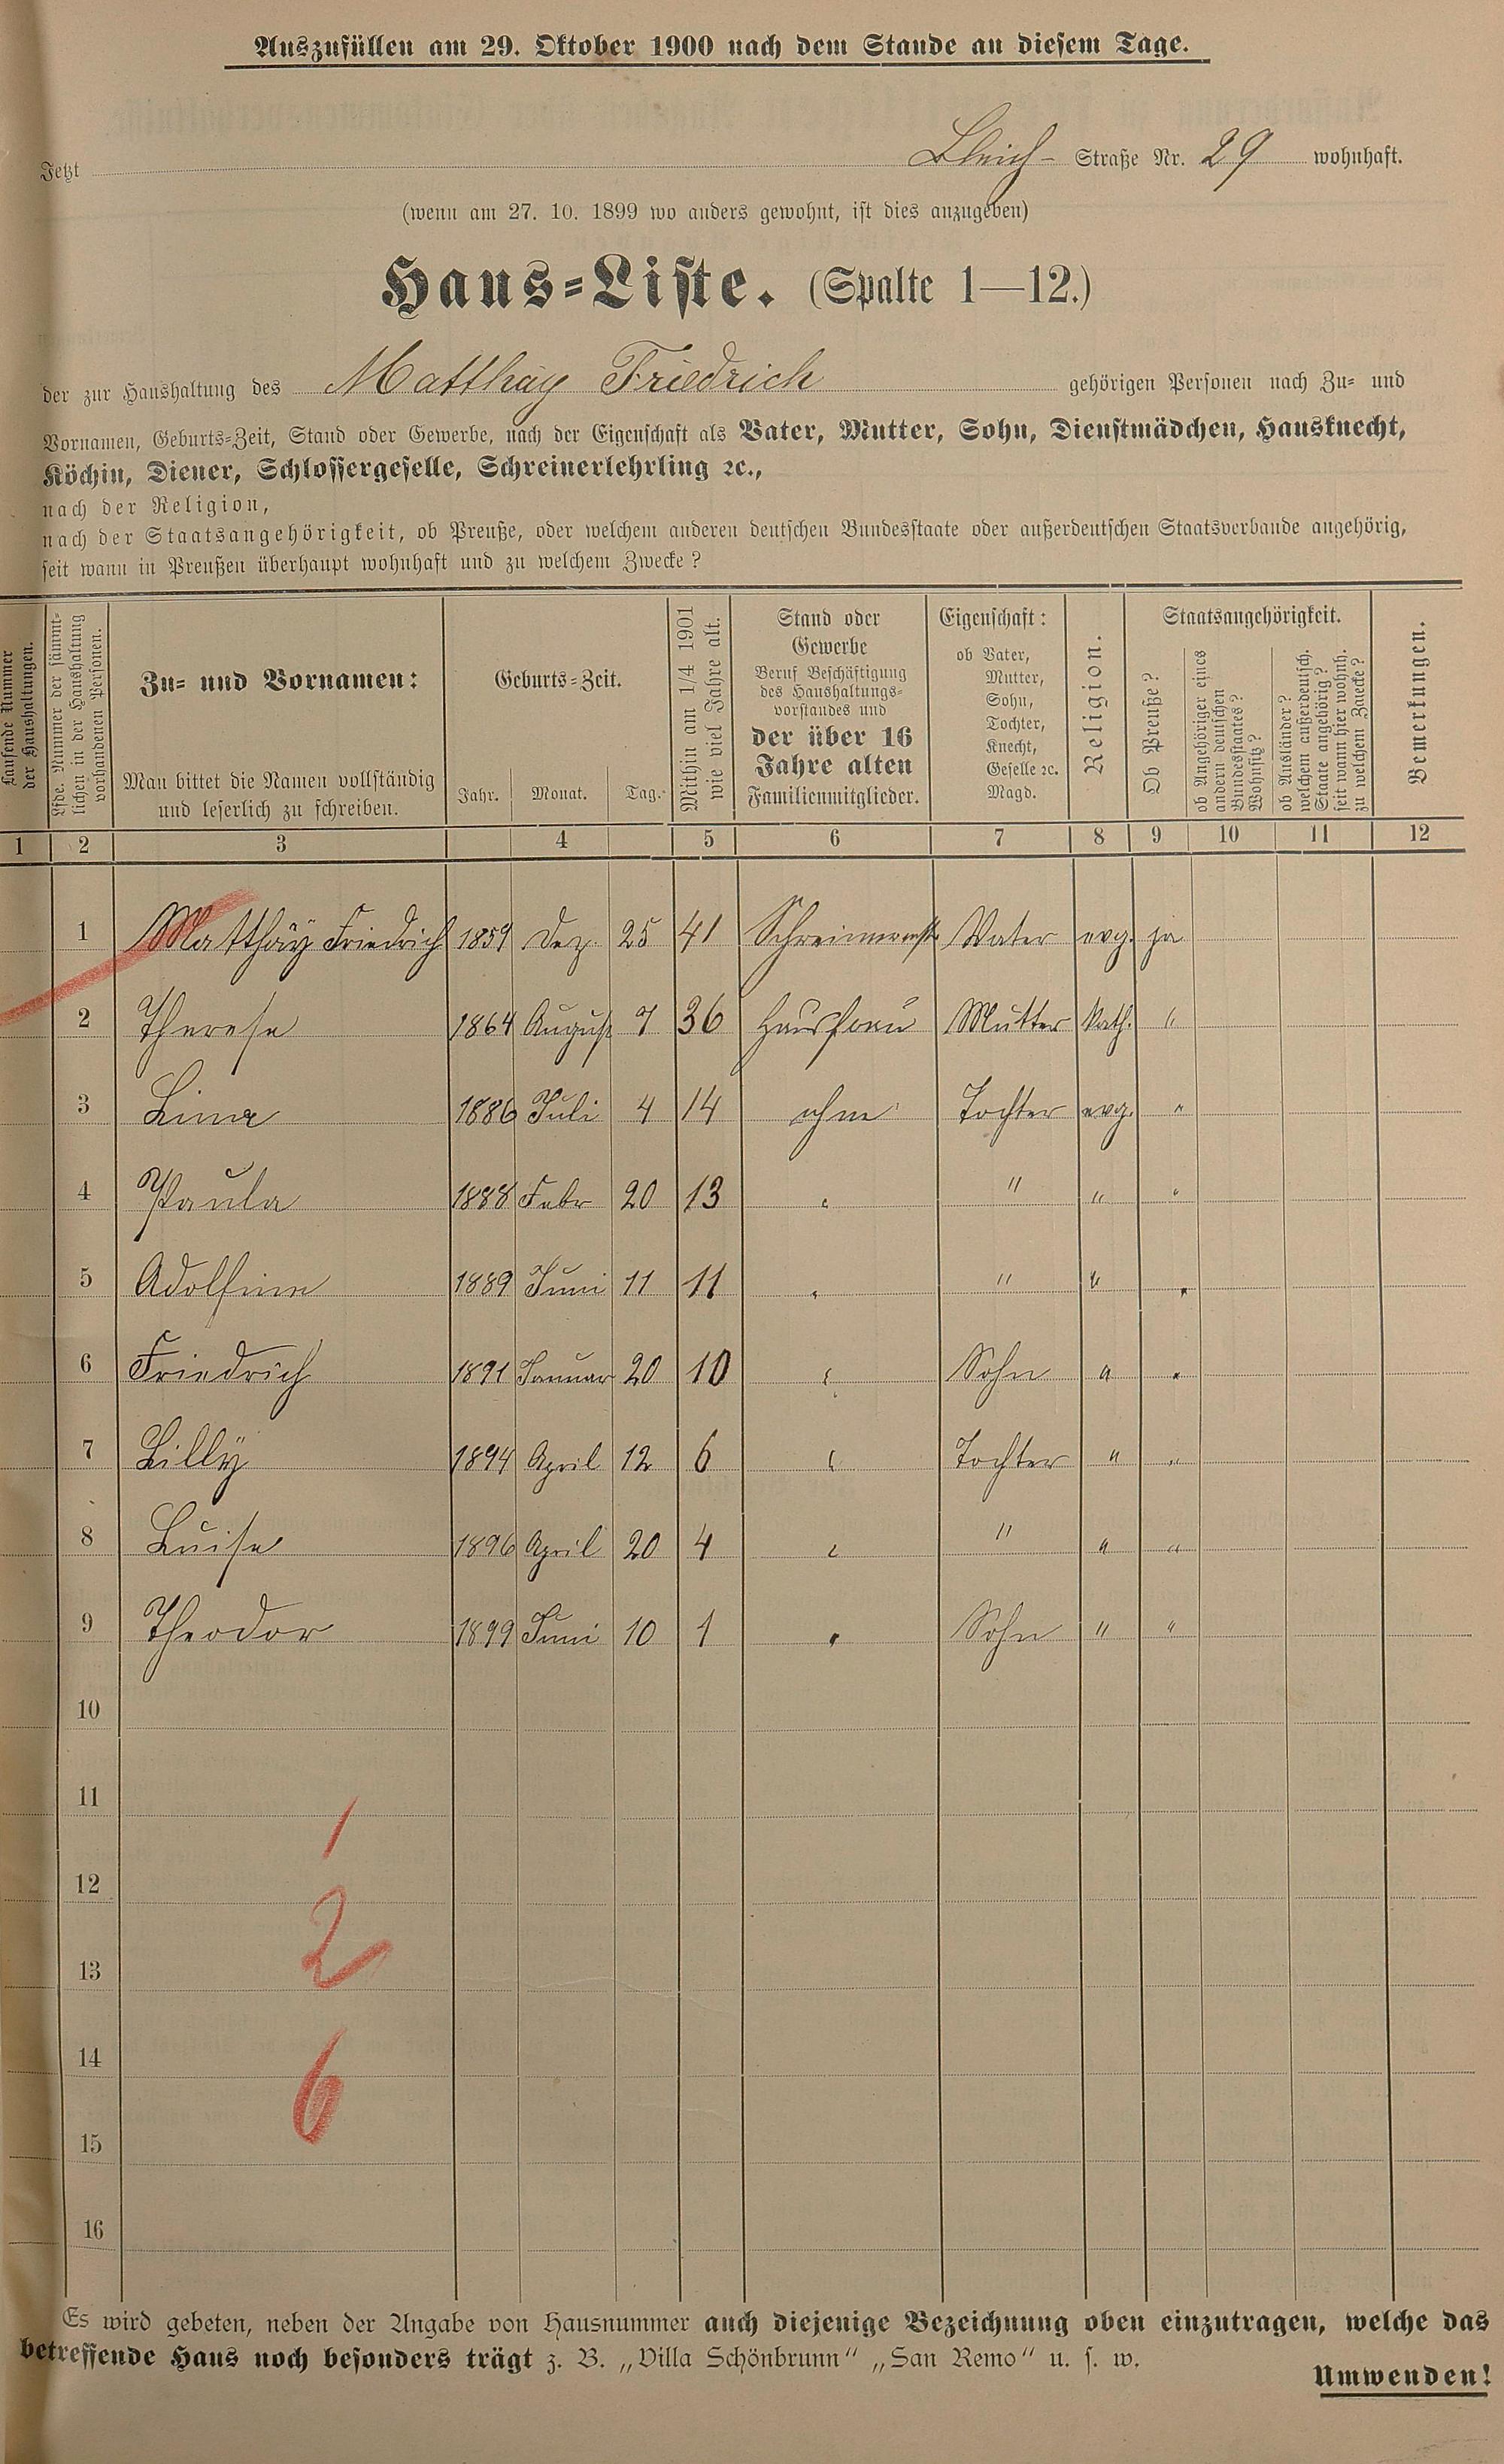 Auszufüllen am 29. Oktober 1900 nach dem Stande an diesem Tage.
Jetzt Bleich- Straße Nr. 29 wohnhaft.
(wenn am 27. 10. 1899 wo anders gewohnt, ist dies anzugeben)
Haus-Liste. (Spalte 1—12.)
der zur Haushaltung des Matthäy Friedrich gehörigen Personen nach Zu- und
Vornamen, Geburts-Zeit, Stand oder Gewerbe, nach der Eigenschaft als Vater, Mutter, Sohn, Dienstmädchen, Hausknecht,
Köchin, Diener, Schlossergeselle, Schreinerlehrling ꝛc.,
nach der Religion,
nach der Staatsangehörigkeit, ob Preuße, oder welchem anderen deutschen Bundesstaate oder außerdeutschen Staatsverbande angehörig,
seit wann in Preußen überhaupt wohnhaft und zu welchem Zwecke?
Laufende Nummer
der Haushaltungen.
Lfde. Nummer der sämmt-
lichen in der Haushaltung
vorhandenen Personen.
Zu- und Vornamen:
Man bittet die Namen vollständig
und leserlich zu schreiben.
Geburts-Zeit.
Jahr. Monat. Tag.
Mithin am 1/4 1901
wie viel Jahre alt.
Stand oder
Gewerbe
Beruf Beschäftigung
des Haushaltungs-
vorstandes und
der über 16
Jahre alten
Familienmitglieder.
Eigenschaft:
ob Vater,
Mutter,
Sohn,
Tochter,
Knecht,
Geselle ꝛc.
Magd.
Religion.
Staatsangehörigkeit.
Ob Preuße?
ob Angehöriger eines
andern deutschen
Bundesstaates?
Wohnsitz?
ob Ausländer?
welchem außerdeutsch.
Staate angehörig?
seit wann hier wohnh.
zu welchem Zwecke?
Bemerkungen.
1 2 3 4 5 6 7 8 9 10 11 12
1 Matthäy Friedrich 1859 Dez. 25 41 Schreinermstr Vater evg. ja
2 Therese 1864 August 7 36 Hausfrau Mutter Kath. "
3 Lina 1886 Juli 4 14 ohne Tochter evg. "
4 Paula 1888 Febr 20 13 " " " "
5 Adolfine 1889 Juni 11 11 " " " "
6 Friedrich 1891 Januar 20 10 " Sohn " "
7 Lilly 1894 April 12 6 " Tochter " "
8 Luise 1896 April 20 4 " " " "
9 Theodor 1899 Juni 10 1 " Sohn " "
10
11
1
12
2
13
14
6
15
16
Es wird gebeten, neben der Angabe von Hausnummer auch diejenige Bezeichnung oben einzutragen, welche das
betreffende Haus noch besonders trägt z. B. „Villa Schönbrunn" „San Remo" u. s. w.
Umwenden!